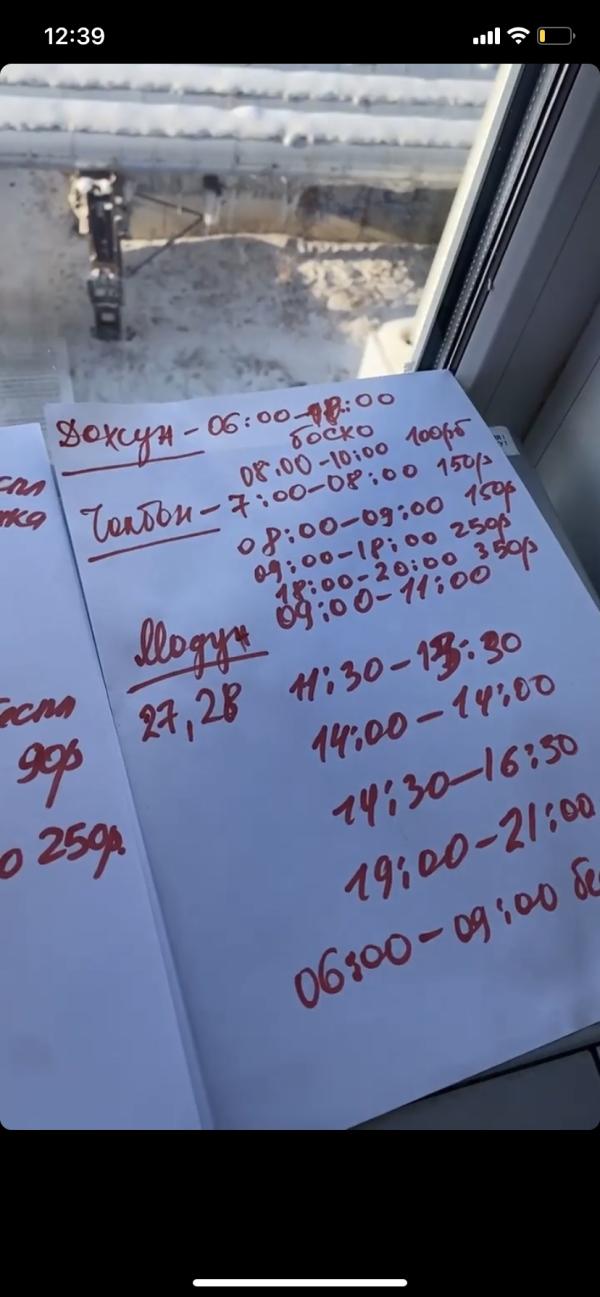 12:39
Дохсун - 06:00-18:00
боско
08:00-10:00 100рб
Чолбон - 7:00-08:00 150р
08:00-09:00 150р
09:00-18:00 250р
18:00-20:00 350р
09:00-11:00
Модун
27,28
11:30-13:30
14:00-14:00
14:30-16:30
19:00-21:00
06:00-09:00 бе
90р
о 250р.